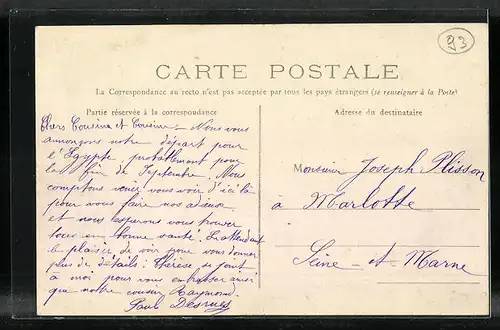 93
CARTE POSTALE
La Correspondance au recto n'est pas acceptée par tous les pays étrangers (se renseigner à la Poste)
Partie réservée à la correspondance
Adresse du destinataire
Chers Cousins et Cousine - Nous vous
annonçons notre départ pour
l'Egypte, probablement pour
la fin de Septembre. Nous
comptons venir vous voir d'ici là
pour vous faire nos adieux
et nous espérons vous trouver
tous en bonne santé. En attendant
le plaisir de voir pour vous donner
plus de détails. Thérèse se joint
à moi pour vous embrasser ainsi
que notre cousin Raymond.
Paul
Monsieur Joseph Plisson
à Marlotte
Seine-et-Marne